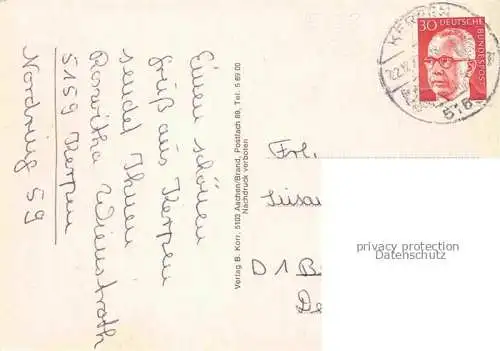 Einen schönen
Gruß aus Kerpen
sendet Ihnen
Roswitha
5159 Kerpen
Nordring 59
Verlag B. Korr. 5103 Aachen/Brand, Postfach 69, Tel. 5 69 00
Nachdruck verboten
KERPEN
30 DEUTSCHE BUNDESPOST
515
Frl.
D 1 B
privacy protection
Datenschutz